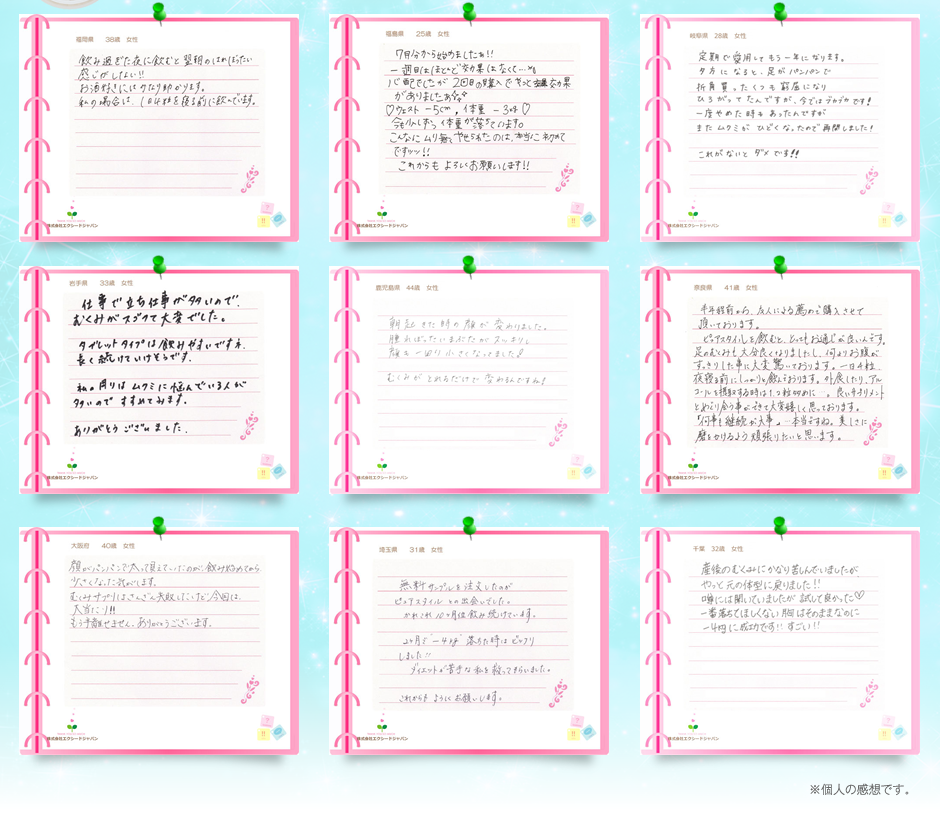 福岡県　38歳　女性
飲み過ぎた夜に飲むと翌朝のはれぼったい
感じがしない!!
お酒好きにはかなり助かります。
私の場合は、1日4粒を寝る前に飲んでいます。
株式会社エクシードジャパン
福島県　25歳　女性
7月分から始めましたぁ!!
一週目はほとんど効果はなくて…
心配でしたが2回目の購入でやっと効果
がありましたぁ
♡ウェスト −5cm, 体重 −3kg♡
今も少しずつ体重が落ちています。
こんなにムリ無くやせられたのは、本当に初めて
ですッッ!!
これからも よろしくお願いします!!
株式会社エクシードジャパン
岐阜県　28歳　女性
定期で愛用してもう一年になります。
夕方になると、足がパンパンで
折角買ったくつも窮屈になり
ひろがってたんですが、今ではブカブカです!
一度やめた時もあったんですが
またムクミがひどくなったので再開しました!
これがないとダメです!!
株式会社エクシードジャパン
岩手県　33歳　女性
仕事で立ち仕事が多いので、
むくみがスゴクて大変でした。
タブレットタイプは飲みやすいですネ
長く続けていけそうです。
私の周りはムクミに悩んでいる人が
多いのですすめてみます。
ありがとうございました。
株式会社エクシードジャパン
鹿児島県　44歳　女性
朝起きた時の顔が変わりました。
腫れぼったいまぶたがスッキリし
顔も一回り小さくなりました!
むくみがとれるだけで変わるんですね!
株式会社エクシードジャパン
奈良県　41歳　女性
半年程前から、友人による薦めで購入させて
頂いております。
ピュアスタイルを飲むと、とってもお通じが良いんです。
足のむくみも大分良くなりましたし、何よりお腹が
すっきりした事に大変驚いております。一日木粒、
夜寝る前にしっかりと飲んでおります。外食したり、アル
コールを摂取する時は1、2粒多めに。良いサプリメント
とめぐり会う事ができて大変嬉しく思っております。
「何事も継続が大事」本当ですね。美しさに
磨きをかけるよう頑張りたいと思います。
株式会社エクシードジャパン
大阪府　40歳　女性
顔がパンパンで太って見えていたのが、飲み始めてから
小さくなった気がします。
むくみサプリはさんざん失敗していたけど今回は、
大当たり!!
もう手離せません。ありがとうございます。
株式会社エクシードジャパン
埼玉県　31歳　女性
無料サンプルを注文したのが
ピュアスタイルとの出会いでした。
かれこれ10ヶ月位飲み続けています。
2ヶ月で −4kg 落ちた時はビックリ
しました!!
ダイエットが苦手な私を救ってもらいました。
これからも よろしくお願いします。
株式会社エクシードジャパン
千葉　32歳　女性
産後のむくみにかなり苦しんでいましたが
やっと元の体型に戻りました!!
噂には聞いていましたが試して良かった♡
一番落ちてほしくない胸はそのままなのに
−4kgに成功です!! すごい!!
株式会社エクシードジャパン
※個人の感想です。